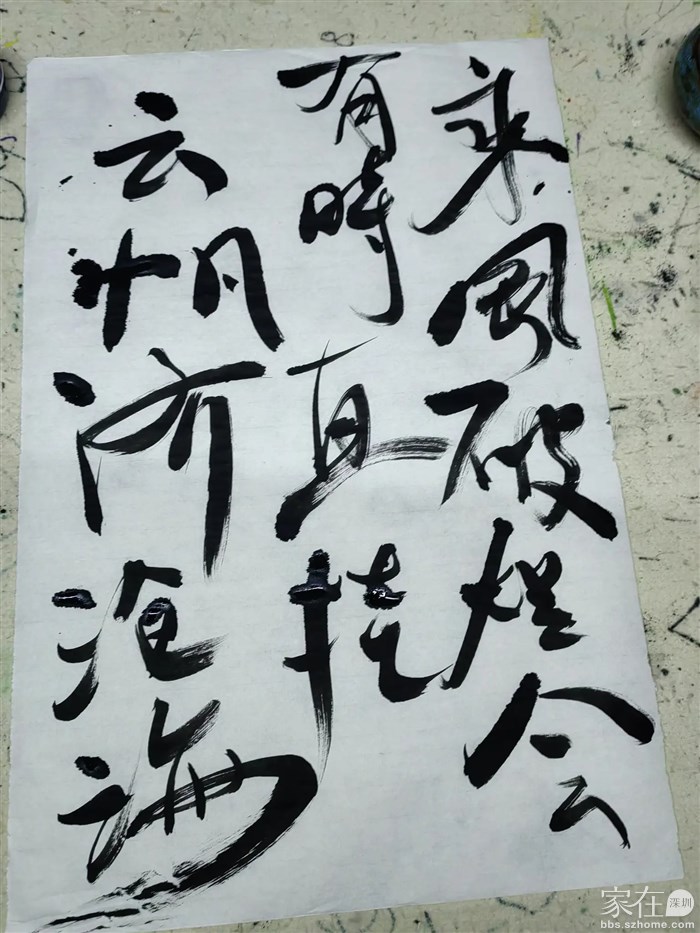 乘風破浪会
有時直挂
云帆济沧海
家在深圳
bbs.szhome.com